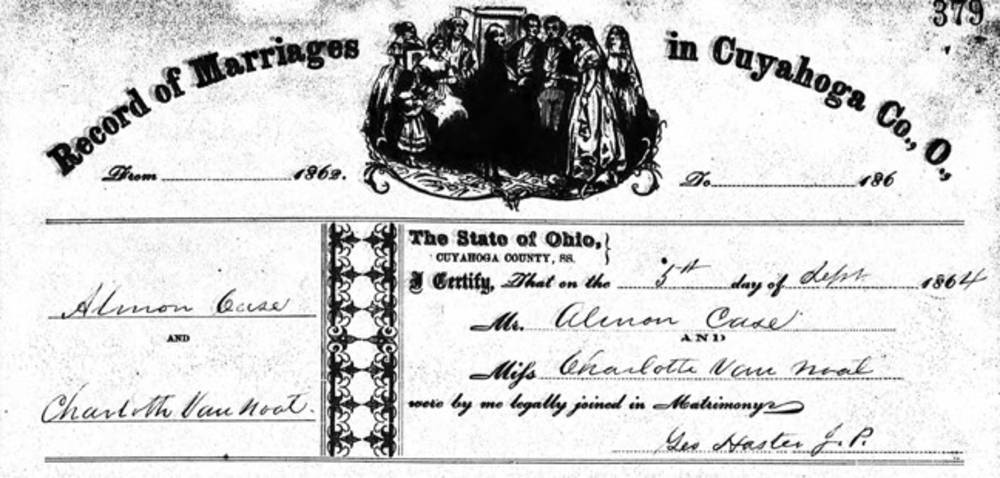 379
Record of Marriages in Cuyahoga Co., O.
From 1862. To 186
The State of Ohio,
CUYAHOGA COUNTY, SS.
I Certify, That on the 5th day of Sept 1864
Almon Case
Mr. Almon Case
AND
AND
Miss Charlotte Van Noat
Charlotte Van Noat.
were by me legally joined in Matrimony
Geo Haster J.P.